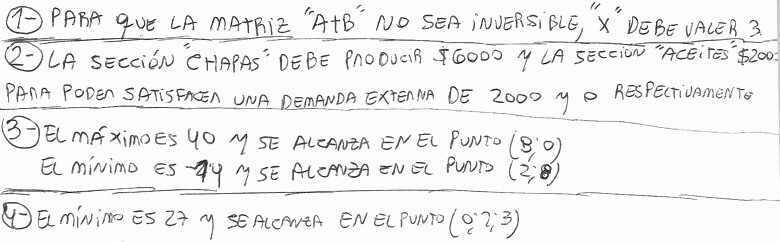 1- PARA QUE LA MATRIZ "A+B" NO SEA INVERSIBLE, "X" DEBE VALER 3.
2- LA SECCIÓN "CHAPAS" DEBE PRODUCIR $6000 Y LA SECCIÓN "ACEITES" $200
PARA PODER SATISFACER UNA DEMANDA EXTERNA DE 2000 Y 0 RESPECTIVAMENTE
3- EL MÁXIMO ES 40 Y SE ALCANZA EN EL PUNTO (8;0)
EL MÍNIMO ES Y SE ALCANZA EN EL PUNTO (2;8)
4- EL MÍNIMO ES 27 Y SE ALCANZA EN EL PUNTO (0;2;3)